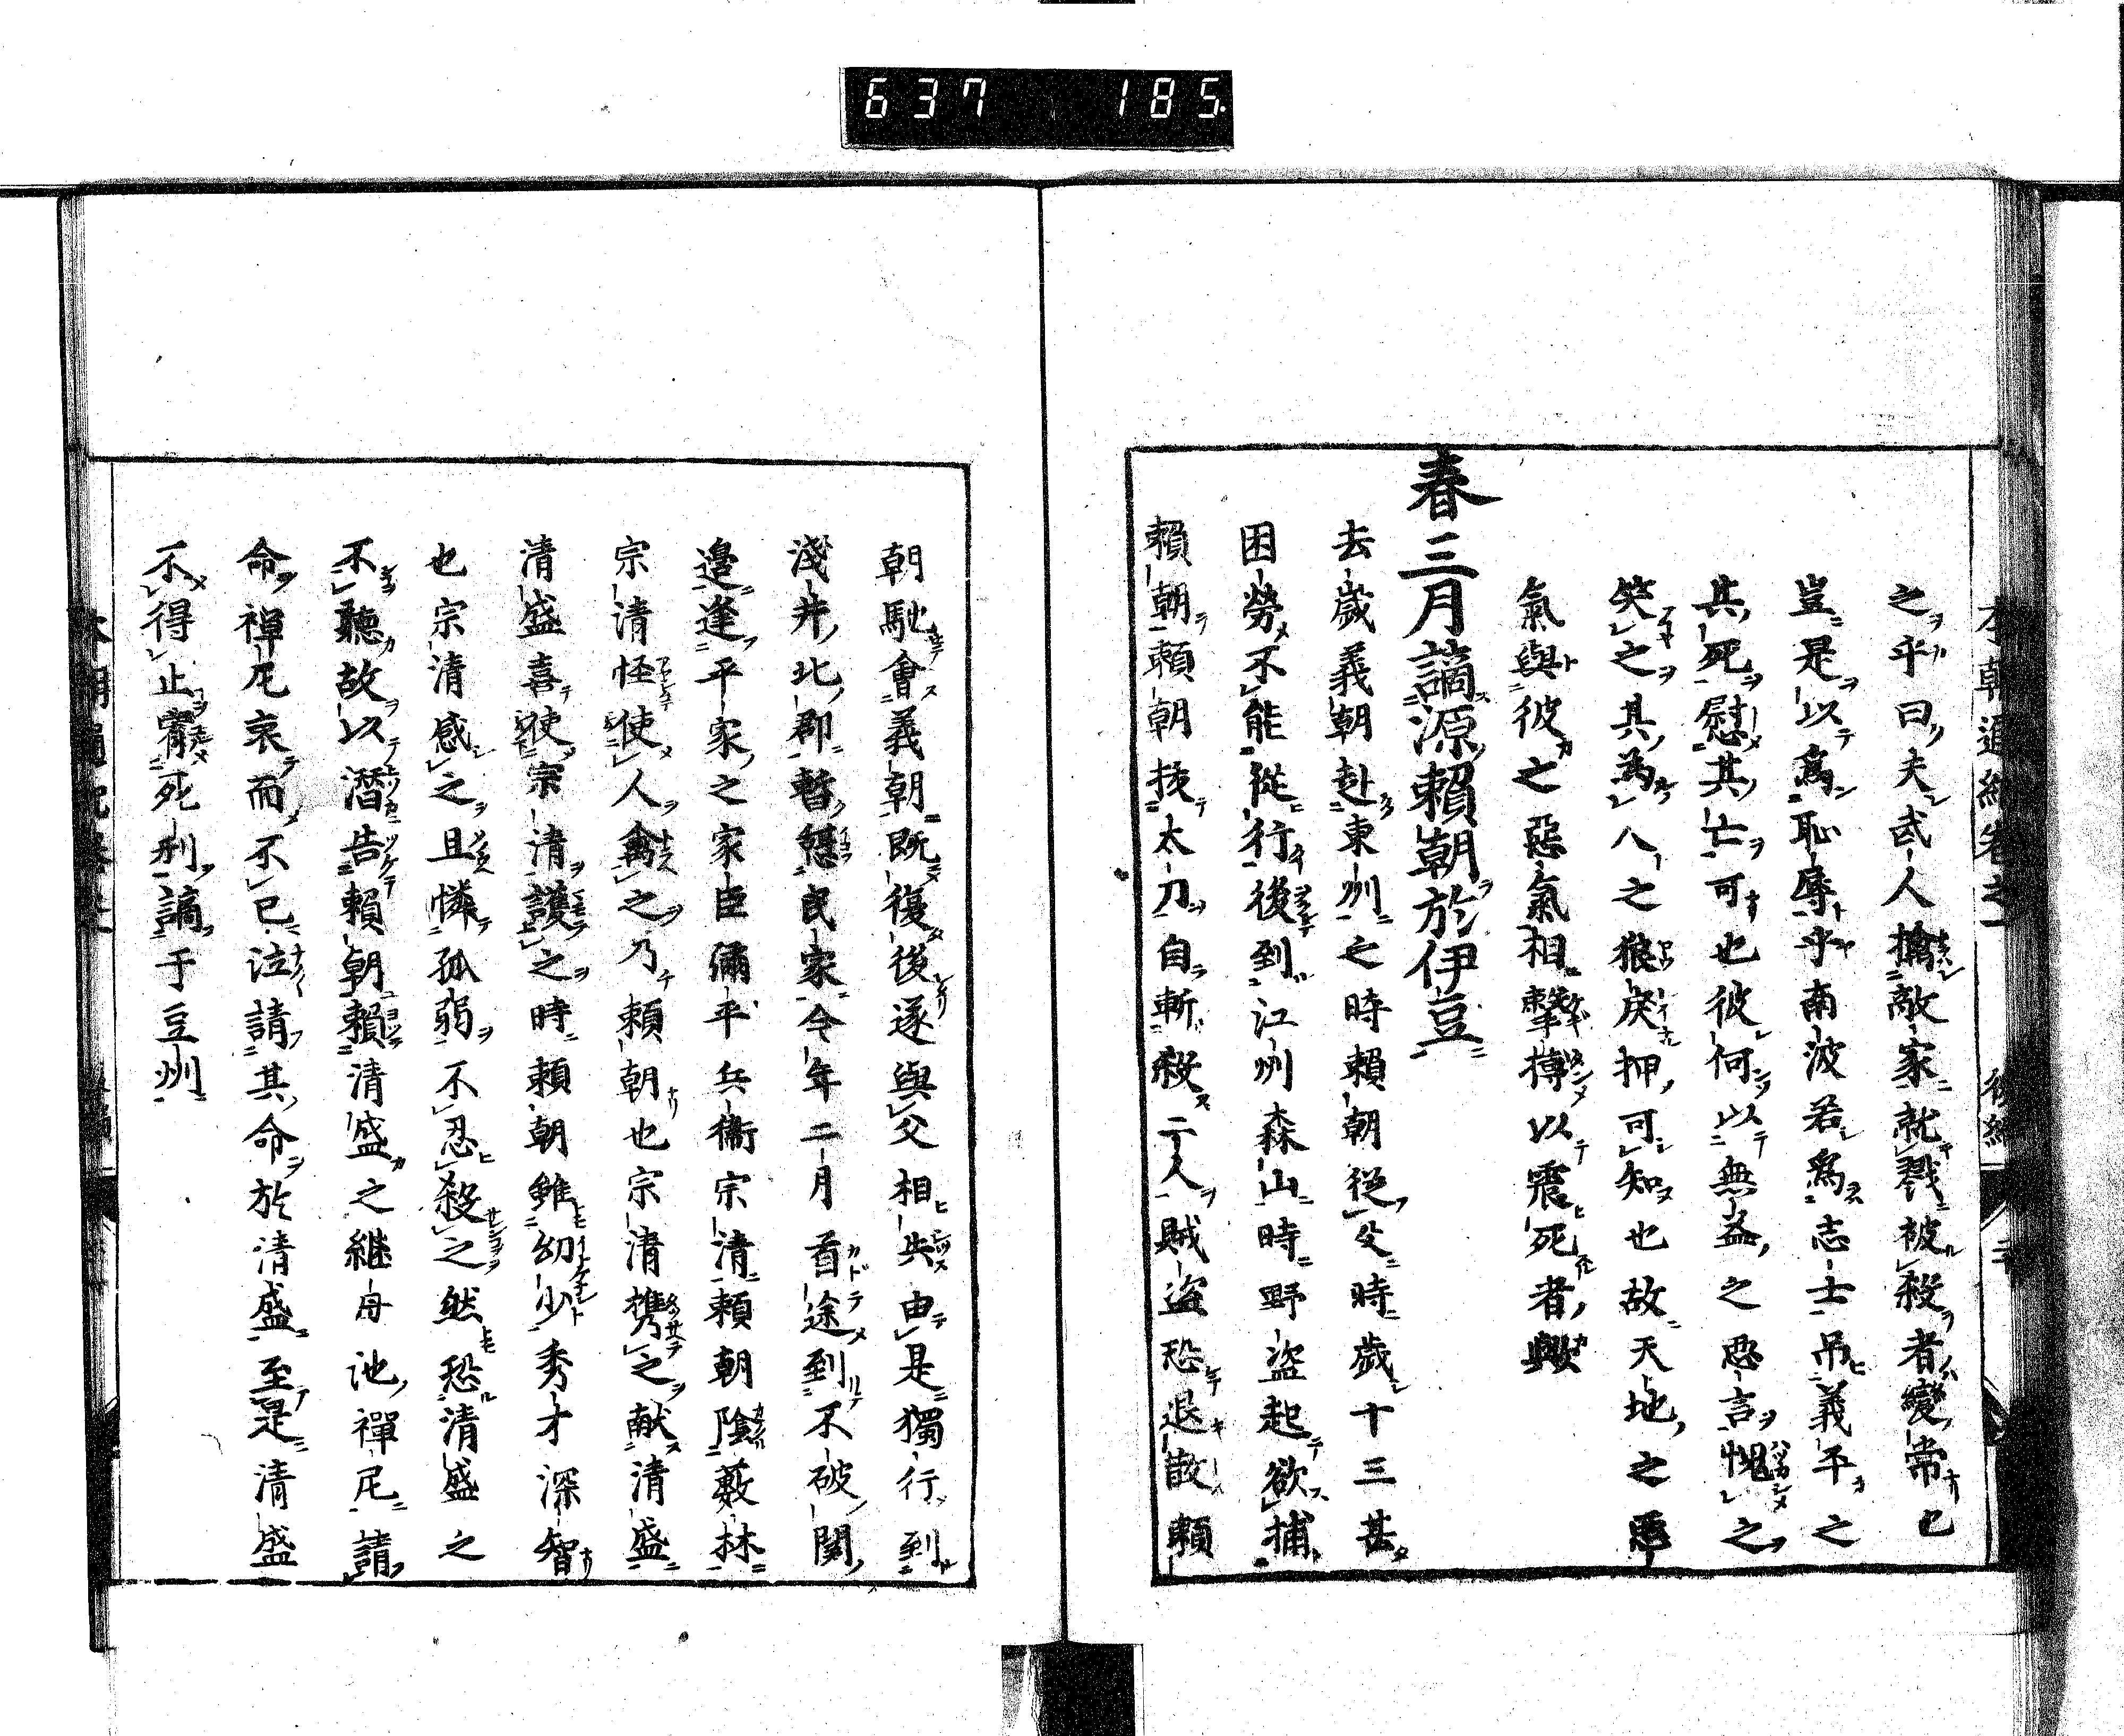 637 185
之乎曰夫武人擒敵家就戮被殺者變常也
豈是以爲恥辱乎南波若爲志士吊義平之
其死慰其亡可也彼何以無益之惡言愧之
笑之其為八之狼戾押可知也故天地之惡
氣與彼之惡氣相擊搏以震死者歟
春三月謫源賴朝於伊豆
去歲義朝赴東州之時賴朝從父時歲十三甚
困勞不能從行後到江州森山時野盜起欲捕
賴朝賴朝拔太刀自斬殺二人賊盜恐退散賴
朝馳會義朝既復後遂與父相失由是獨行到
淺井北郡暫憩民家今年二月首途到不破関
邉逢平家之家臣彌平兵衞宗清賴朝陰薮林
宗清怪使人禽之乃賴朝也宗清携之献清盛
清盛喜使宗清護之時賴朝雖幼少秀才深智
也宗清感之且憐孤弱不忍殺之然恐清盛之
不聽故以潛告賴朝賴清盛之継母池禪尼請
命禪尼哀而不已泣請其命於清盛至是清盛
不得止宥死刑謫于豆州